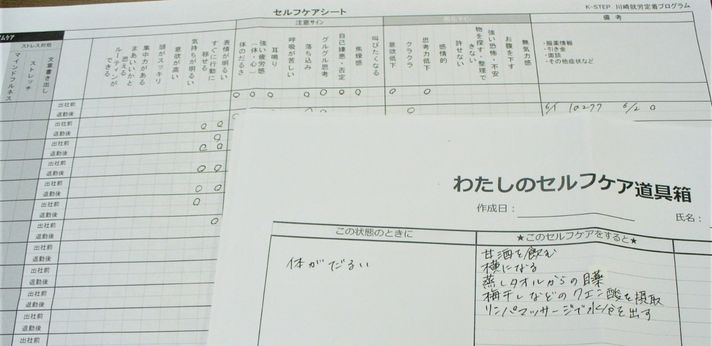 セルフケアシート
K-STEP 川崎就労定着プログラム
注意サイン
備考
ストレス対処
マインドフルネス
ストレッチ
文章書き出し
ルーティンができる
まあいいかと思える
集中力がある
頭がスッキリ
意欲が高い
気持ちが明るい
すぐに行動に移せる
表情が明るい
体のだるさ
強い疲労感(一体・心)
耳鳴り
呼吸が苦しい
落ち込み
グルグル思考
自己嫌悪・否定
焦燥感
叫びたくなる
意欲低下
クラクラ
思考力低下
感情的
許せない
物を探す・整理できない
強い恐怖・不安
お腹を下す
無気力感
・服薬情報
・引き金
・面談
・その他症状など
出社前
退勤後
出社前
退勤後
出社前
退勤後
出社前
退勤後
出社前
退勤後
出社前
退勤後
出社前
退勤後
出社前
退勤後
出社前
退勤後
わたしのセルフケア道具箱
作成日:
氏名:
この状態のときに
★このセルフケアをすると★
体がだるい
甘酒を飲む
横になる
蒸しタオルからの目薬
梅干しなどのクエン酸を摂取
リンパマッサージで水分を出す